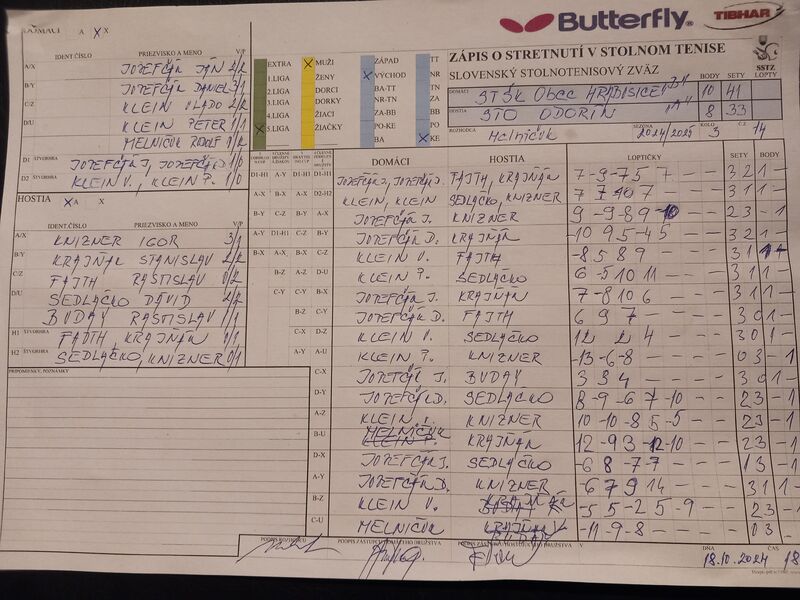 Butterfly TIBHAR
DOMÁCI A X X
IDENT.ČÍSLO PRIEZVISKO A MENO V/P
A/X JOZEFČÁK JÁN 2/2
B/Y JOZEFČÁK DANIEL 3/1
C/Z KLEIN VLADO 2/2
D/U KLEIN PETER 1/1
MELNIČUK RUDOLF 0/2
D1 ŠTVORHRA JOZEFČÁK J., JOZEFČÁK D. 1/0
D2 ŠTVORHRA KLEIN V., KLEIN P. 1/0
HOSTIA X A X
IDENT.ČÍSLO PRIEZVISKO A MENO V/P
A/X KNIZNER IGOR 3/1
B/Y KRAJŇÁK STANISLAV 2/2
C/Z FAJTH RASTISLAV 0/2
D/U SEDLAČKO DÁVID 2/2
BUDAY RASTISLAV 1/1
H1 ŠTVORHRA FAJTH, KRAJŇÁK 0/1
H2 ŠTVORHRA SEDLAČKO, KNIZNER 0/1
PRIPOMIENKY, POZNÁMKY
EXTRA X MUŽI ZÁPAD TT
1.LIGA ŽENY X VÝCHOD NR
2.LIGA DORCI BA-TT TN
3.LIGA DORKY NR-TN ZA
4.LIGA ŽIACI ZA-BB BB
X 5.LIGA ŽIAČKY PO-KE PO
BA X KE
ZÁPIS O STRETNUTÍ V STOLNOM TENISE
SLOVENSKÝ STOLNOTENISOVÝ ZVÄZ
SSTZ
BODY SETY LOPTY
DOMÁCI STŠK Obec HRABUŠICE "B" 10 41
HOSTIA STO ODORÍN "A" 8 33
ROZHODCA Melničuk SEZÓNA 2024/2025 KOLO 3 Č.Z. 14
DOMÁCI HOSTIA LOPTIČKY SETY BODY
D1-H1 A-Y D1-H1 D1-H1 JOZEFČÁK J., JOZEFČÁK D. FAJTH, KRAJŇÁK 7 -9 -7 5 7 - - 3 2 1 -
A-X B-X A-X D2-H2 KLEIN, KLEIN SEDLAČKO, KNIZNER 7 7 -10 7 - - - 3 1 1 -
B-Y C-Z B-Y A-X JOZEFČÁK J. KNIZNER 9 -9 -8 9 -10 - - 2 3 - 1
A-Y D1-H1 C-Z B-Y JOZEFČÁK D. KRAJŇÁK -10 9 5 -4 5 - - 3 2 1 -
B-X A-X C-Z KLEIN V. FAJTH -8 5 8 9 - - - 3 1 1 -
B-Z A-Z D-U KLEIN P. SEDLAČKO 6 -5 10 11 - - - 3 1 1 -
C-Y C-X JOZEFČÁK J. KRAJŇÁK 7 -8 10 6 - - - 3 1 1 -
B-Z C-Y JOZEFČÁK D. FAJTH 6 9 7 - - - - 3 0 1 -
C-X D-Z KLEIN V. SEDLAČKO 12 2 4 - - - - 3 0 1 -
A-Y A-U KLEIN P. KNIZNER -13 -6 -8 - - - - 0 3 - 1
C-X JOZEFČÁK J. BUDAY 3 3 4 - - - - 3 0 1 -
D-Y JOZEFČÁK D. SEDLAČKO 8 -9 -6 7 -10 - - 2 3 - 1
A-Z KLEIN V. KNIZNER 10 -10 -8 5 -5 - - 2 3 - 1
B-U MELNIČUK KRAJŇÁK 12 -9 3 -12 -10 - - 2 3 - 1
D-X JOZEFČÁK J. SEDLAČKO -6 8 -7 -7 - - - 1 3 - 1
A-Y JOZEFČÁK D. KNIZNER -6 7 9 14 - - - 3 1 1 -
B-Z KLEIN V. KRAJŇÁK -5 5 -2 5 -9 - - 2 3 - 1
C-U MELNIČUK BUDAY -11 -9 -8 - - - - 0 3 - 1
PODPIS ROZHODCU PODPIS ZÁSTUPCU DOMÁCEHO DRUŽSTVA PODPIS ZÁSTUPCU HOSŤUJÚCEHO DRUŽSTVA V DŇA 18.10.2024 ČAS 18